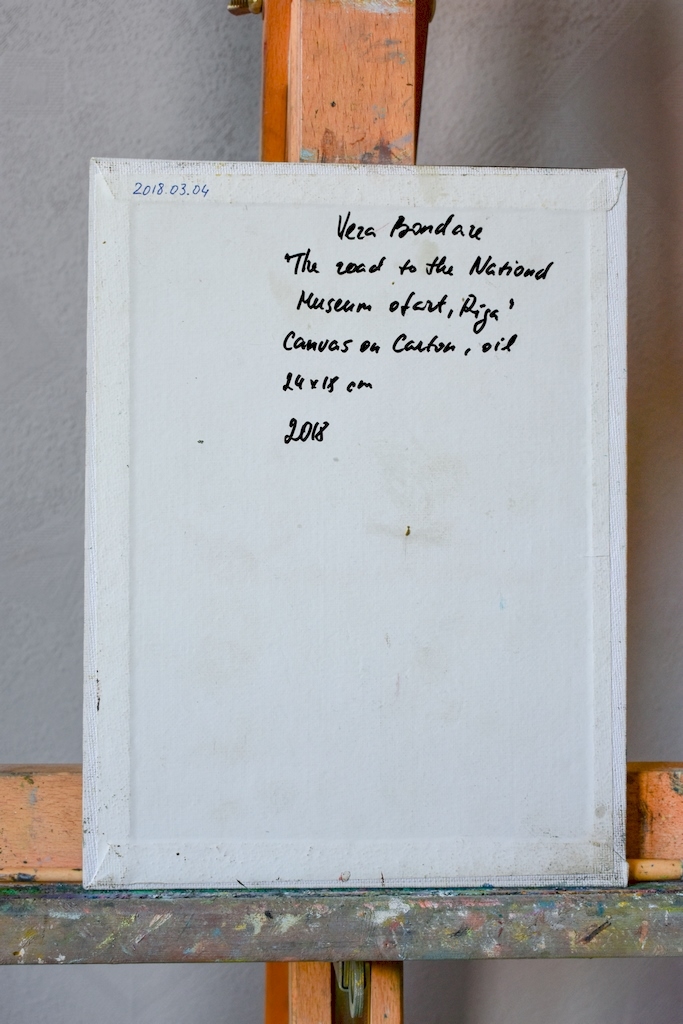 2018.03.04
Vera Bondare
"The road to the National
Museum of art, Riga"
Canvas on Carton, oil
24 x 18 cm
2018